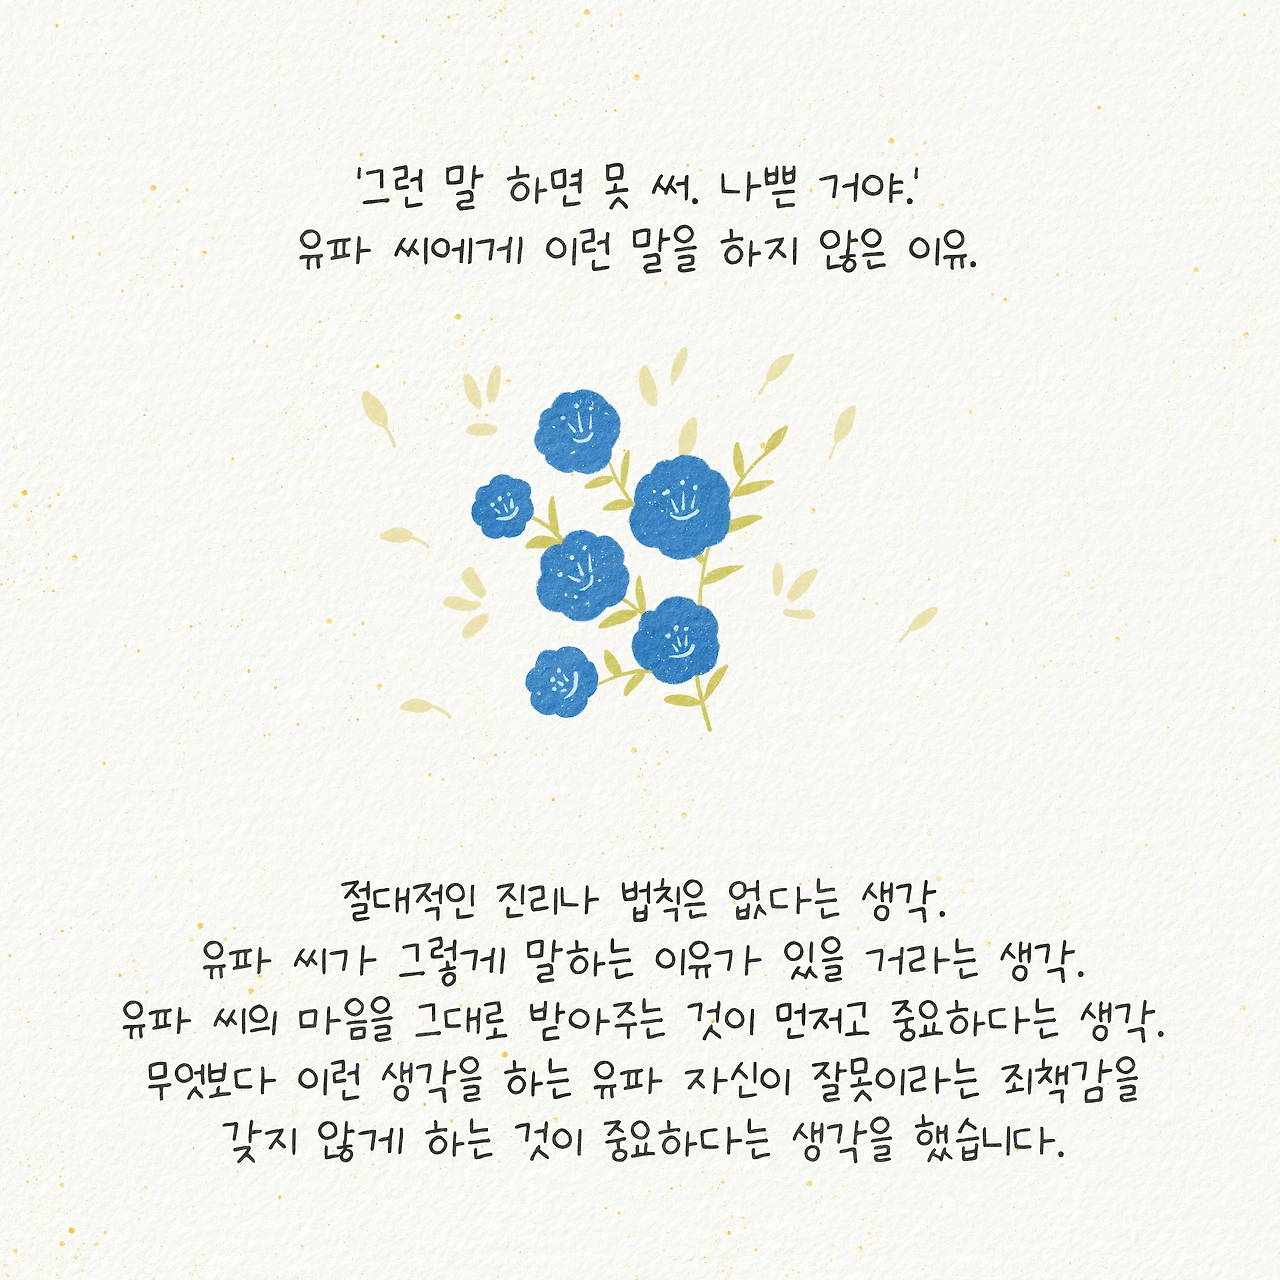 '그런 말 하면 못 써. 나쁜 거야.'
유파 씨에게 이런 말을 하지 않은 이유.
절대적인 진리나 법칙은 없다는 생각.
유파 씨가 그렇게 말하는 이유가 있을 거라는 생각.
유파 씨의 마음을 그대로 받아주는 것이 먼저고 중요하다는 생각.
무엇보다 이런 생각을 하는 유파 자신이 잘못이라는 죄책감을
갖지 않게 하는 것이 중요하다는 생각을 했습니다.